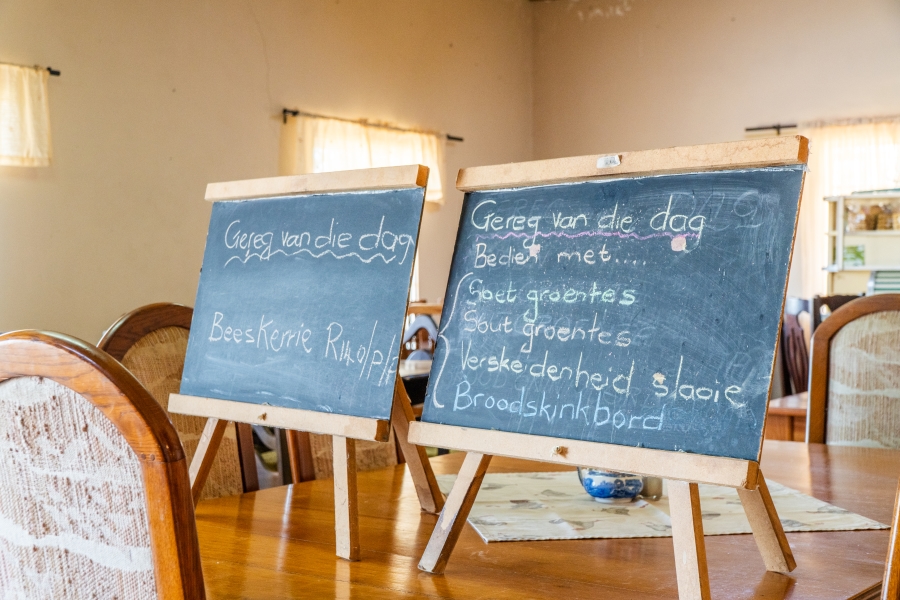 Gereg van die dag
BeesKerrie R140/P/P
Gereg van die dag
Bedien met....
Soet groentes
Sout groentes
Verskeidenheid slaaie
Broodskinkbord